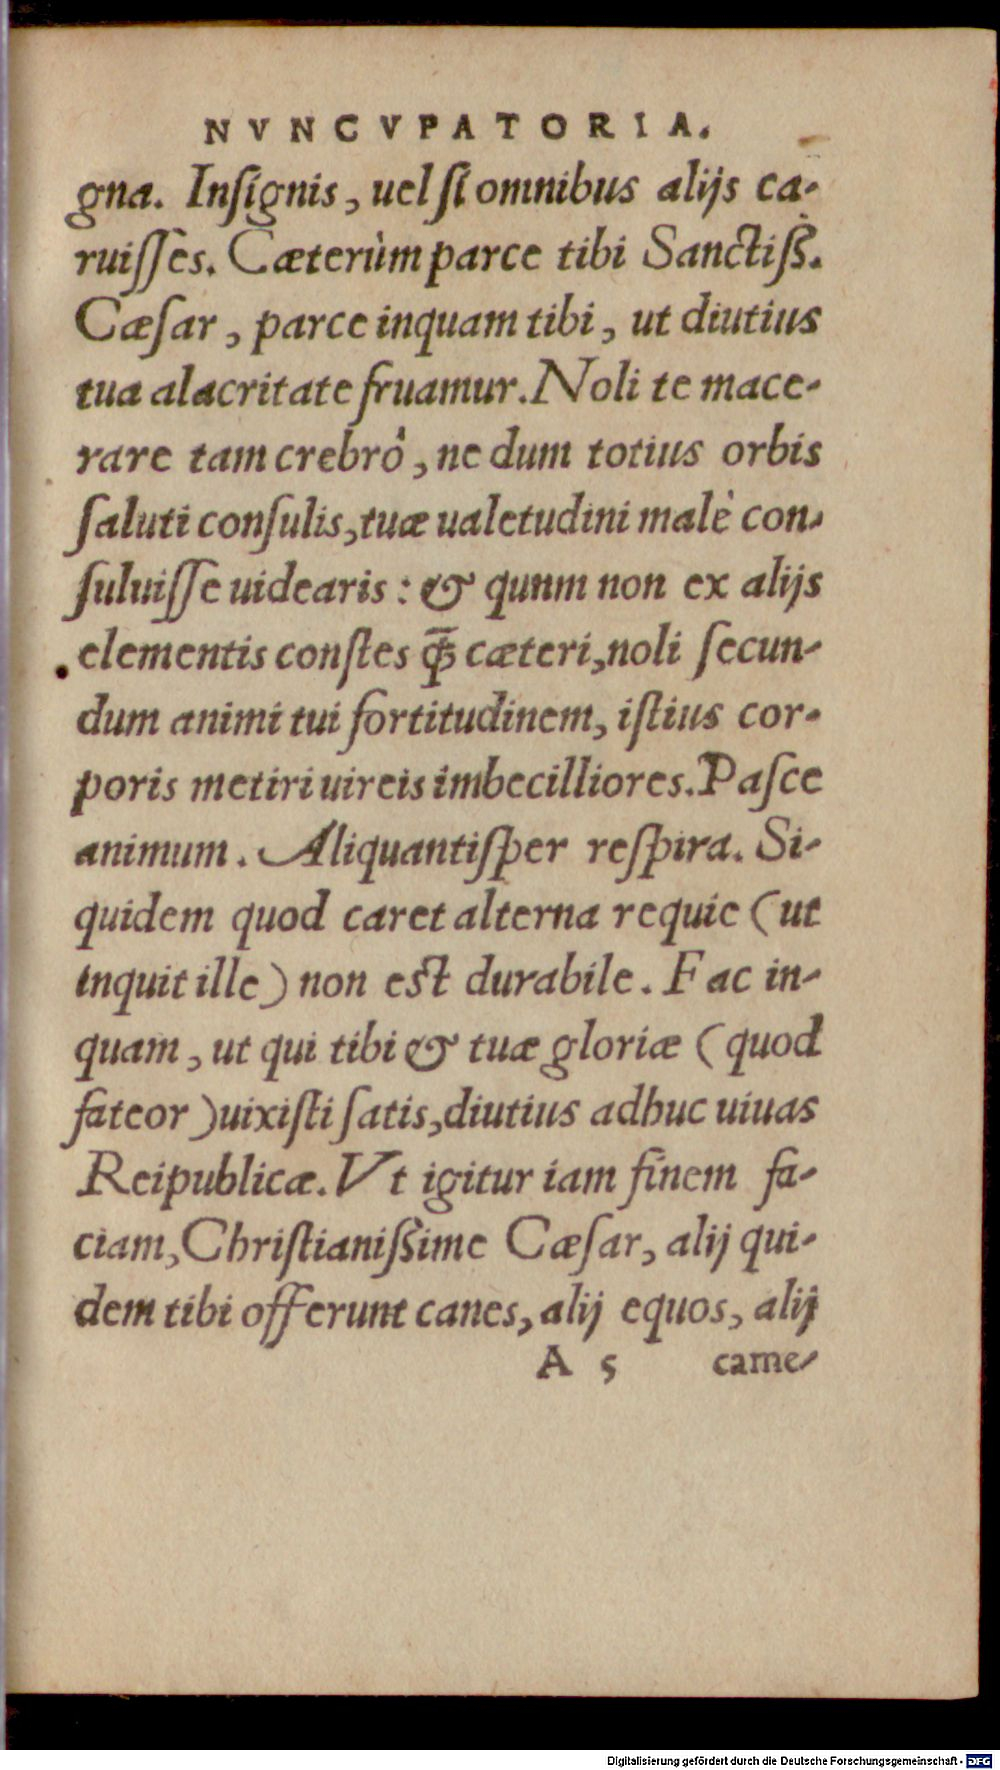 NVNCVPATORIA.
gna. Insignis, uel si omnibus alijs ca-
ruissès. Cæterùm parce tibi Sanctiß.
Cæsar, parce inquam tibi, ut diutius
tua alacritate fruamur. Noli te mace-
rare tam crebrò, ne dum totius orbis
saluti consulis, tuæ ualetudini malè con-
suluisse uidearis: & qunm non ex alijs
elementis constes ꝙ̃ cæteri, noli secun-
dum animi tui fortitudinem, istius cor-
poris metiri uireis imbecilliores. Pasce
animum. Aliquantisper respira. Si-
quidem quod caret alterna requie (ut
inquit ille) non est durabile. Fac in-
quam, ut qui tibi & tuæ gloriæ (quod
fateor) uixisti satis, diutius adhuc uiuas
Reipublicæ. Vt igitur iam finem fa-
ciam, Christianißime Cæsar, alij qui-
dem tibi offerunt canes, alij equos, alij
A 5 came-
Digitalisierung gefördert durch die Deutsche Forschungsgemeinschaft - DFG